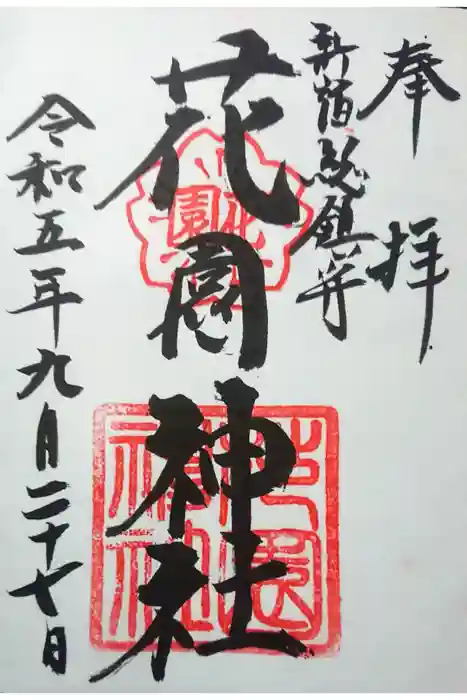 奉拝
新宿総鎮守
花園神社
令和五年九月二十七日
花園
花園神社